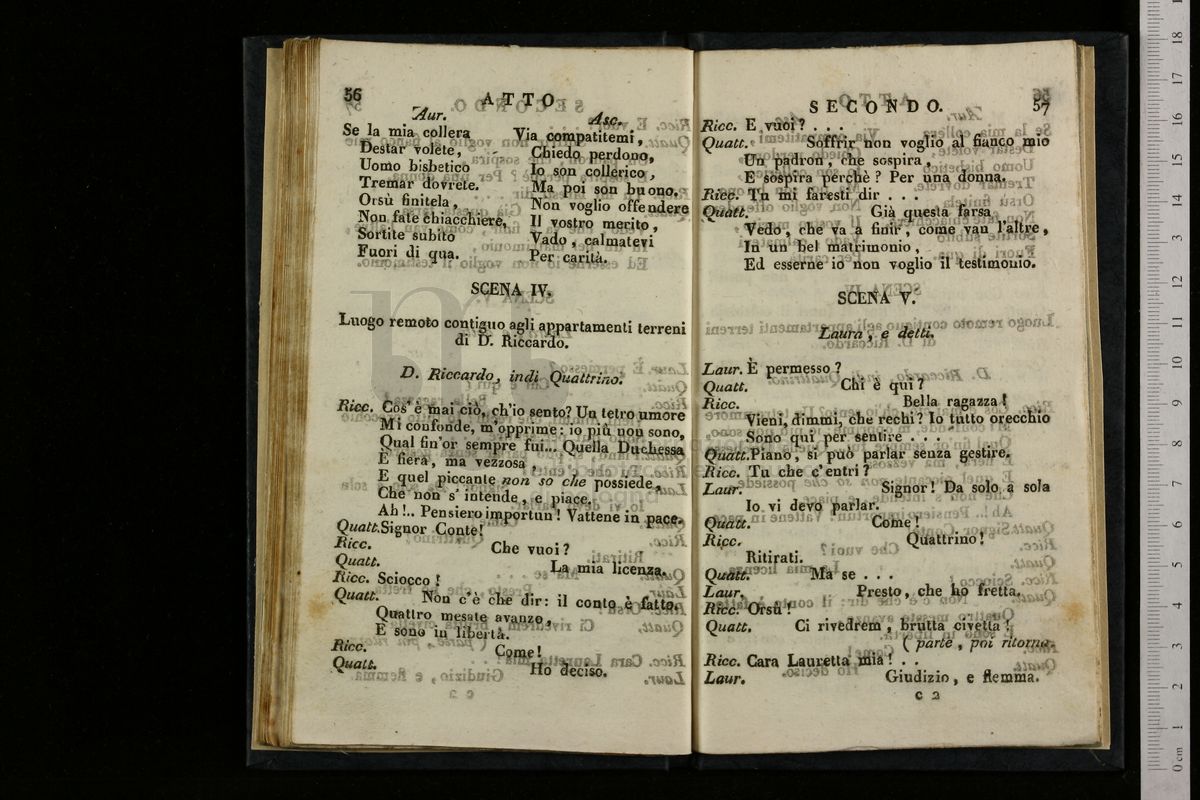 56 ATTO
Aur.
Se la mia collera
Destar volete,
Uomo bisbetico
Tremar dovrete.
Orsù finitela,
Non fate chiacchiere,
Sortite subito
Fuori di qua.
Asc.
Via compatitemi,
Chiedo perdono,
Io son collerico,
Ma poi son buono.
Non voglio offendere
Il vostro merito,
Vado, calmatevi
Per carità.
SCENA IV.
Luogo remoto contiguo agli appartamenti terreni
di D. Riccardo.
D. Riccardo, indi Quattrino.
Ricc. Cos' è mai ciò, ch'io sento? Un tetro umore
Mi confonde, m'opprime: io più non sono,
Qual fin'or sempre fui... Quella Duchessa
È fiera, ma vezzosa,
E quel piccante non so che possiede,
Che non s' intende, e piace.
Ah!.. Pensiero importun! Vattene in pace.
Quatt. Signor Conte!
Ricc. Che vuoi?
Quatt. La mia licenza.
Ricc. Sciocco!
Quatt. Non c'è che dir: il conto è fatto.
Quattro mesate avanzo,
E sono in libertà.
Ricc. Come!
Quatt. Ho deciso.
SECONDO. 57
Ricc. E vuoi? . . .
Quatt. Soffrir non voglio al fianco mio
Un padron, che sospira,
E sospira perchè? Per una donna.
Ricc. Tu mi faresti dir . . .
Quatt. Già questa farsa
Vedo, che va a finir, come van l'altre,
In un bel matrimonio,
Ed esserne io non voglio il testimonio.
SCENA V.
Laura, e detti.
Laur. È permesso?
Quatt. Chi è qui?
Ricc. Bella ragazza!
Vieni, dimmi, che rechi? Io tutto orecchio
Sono qui per sentire . . .
Quatt. Piano, si può parlar senza gestire.
Ricc. Tu che c'entri?
Laur. Signor! Da solo a sola
Io vi devo parlar.
Quatt. Come!
Ricc. Quattrino!
Ritirati.
Quatt. Ma se . . .
Laur. Presto, che ho fretta.
Ricc. Orsù!
Quatt. Ci rivedrem, brutta civetta!
( parte, poi ritorna.
Ricc. Cara Lauretta mia! . .
Laur. Giudizio, e flemma.
c 2